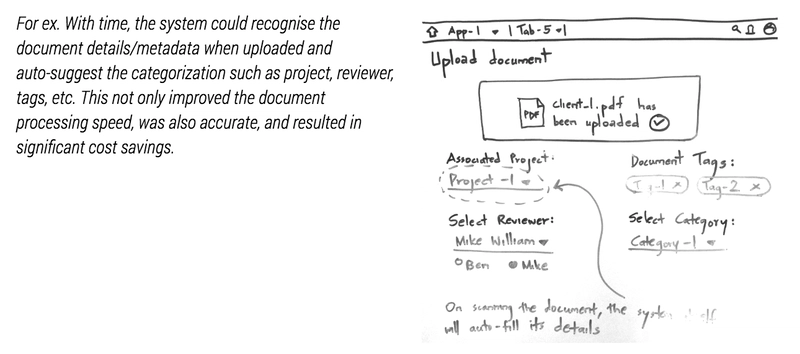 For ex. With time, the system could recognise the
document details/metadata when uploaded and
auto-suggest the categorization such as project, reviewer,
tags, etc. This not only improved the document
processing speed, was also accurate, and resulted in
significant cost savings.
App-1 | Tab-5
Upload document
PDF
client-1.pdf has
been uploaded
Associated Project:
Project -1
Document Tags:
Tag-2 x
Select Reviewer:
Mike William
Ben Mike
Select Category:
Category-1
On scanning the document, the
will auto-fill its details